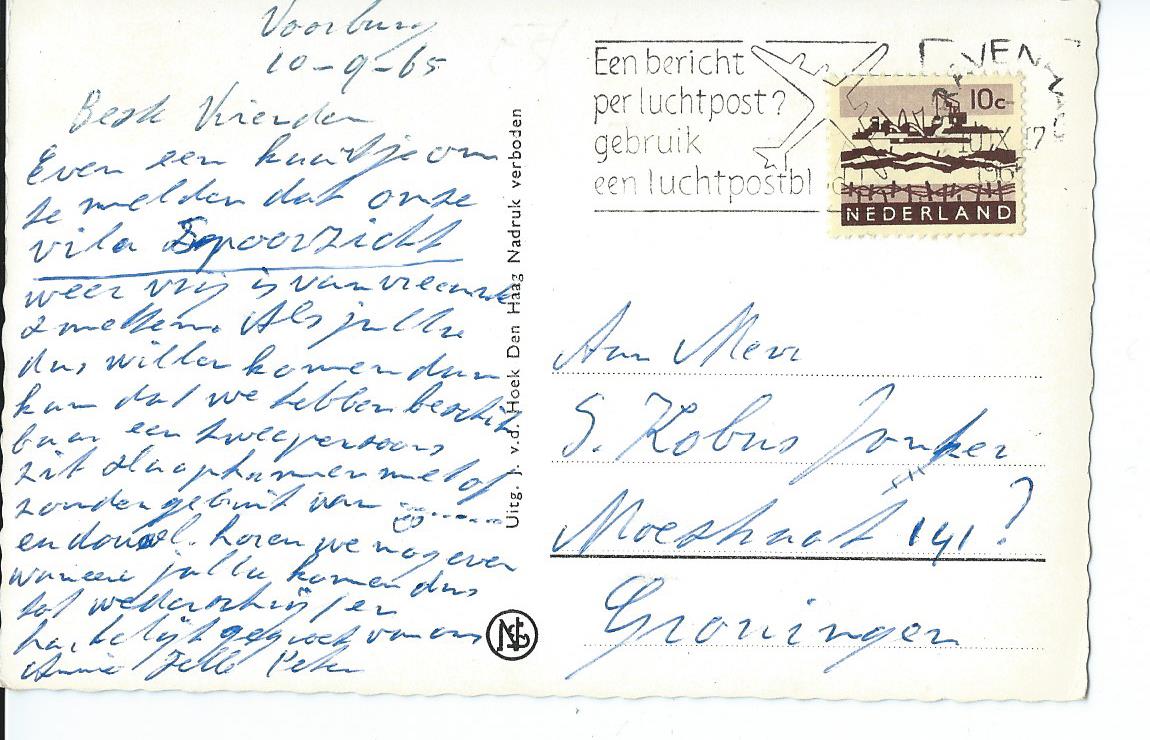 Voorburg
10-9-65
Beste Vrienden
Even een kaartje om
te melden dat onze
vila Spoorzicht
weer vrij is van vreemde
smetten. Als jullie
dus willen komen dan
kan dat we hebben beschik
baar een tweepersoons
zit slaapkamer met of
zonder gebruik van
en douche. horen we nog even
wanneer jullie komen dus
tot wederschrijfen
hartelijk gegroet van ons
Annie Jelle Peter
Uitg. J. v.d. Hoek Den Haag Nadruk verboden
Een bericht
per luchtpost?
gebruik
een luchtpostbl
10 IX 17
196
10c
NEDERLAND
Aan Mevr
S. Kobus Jonker
Moesstraat 141?
Groningen